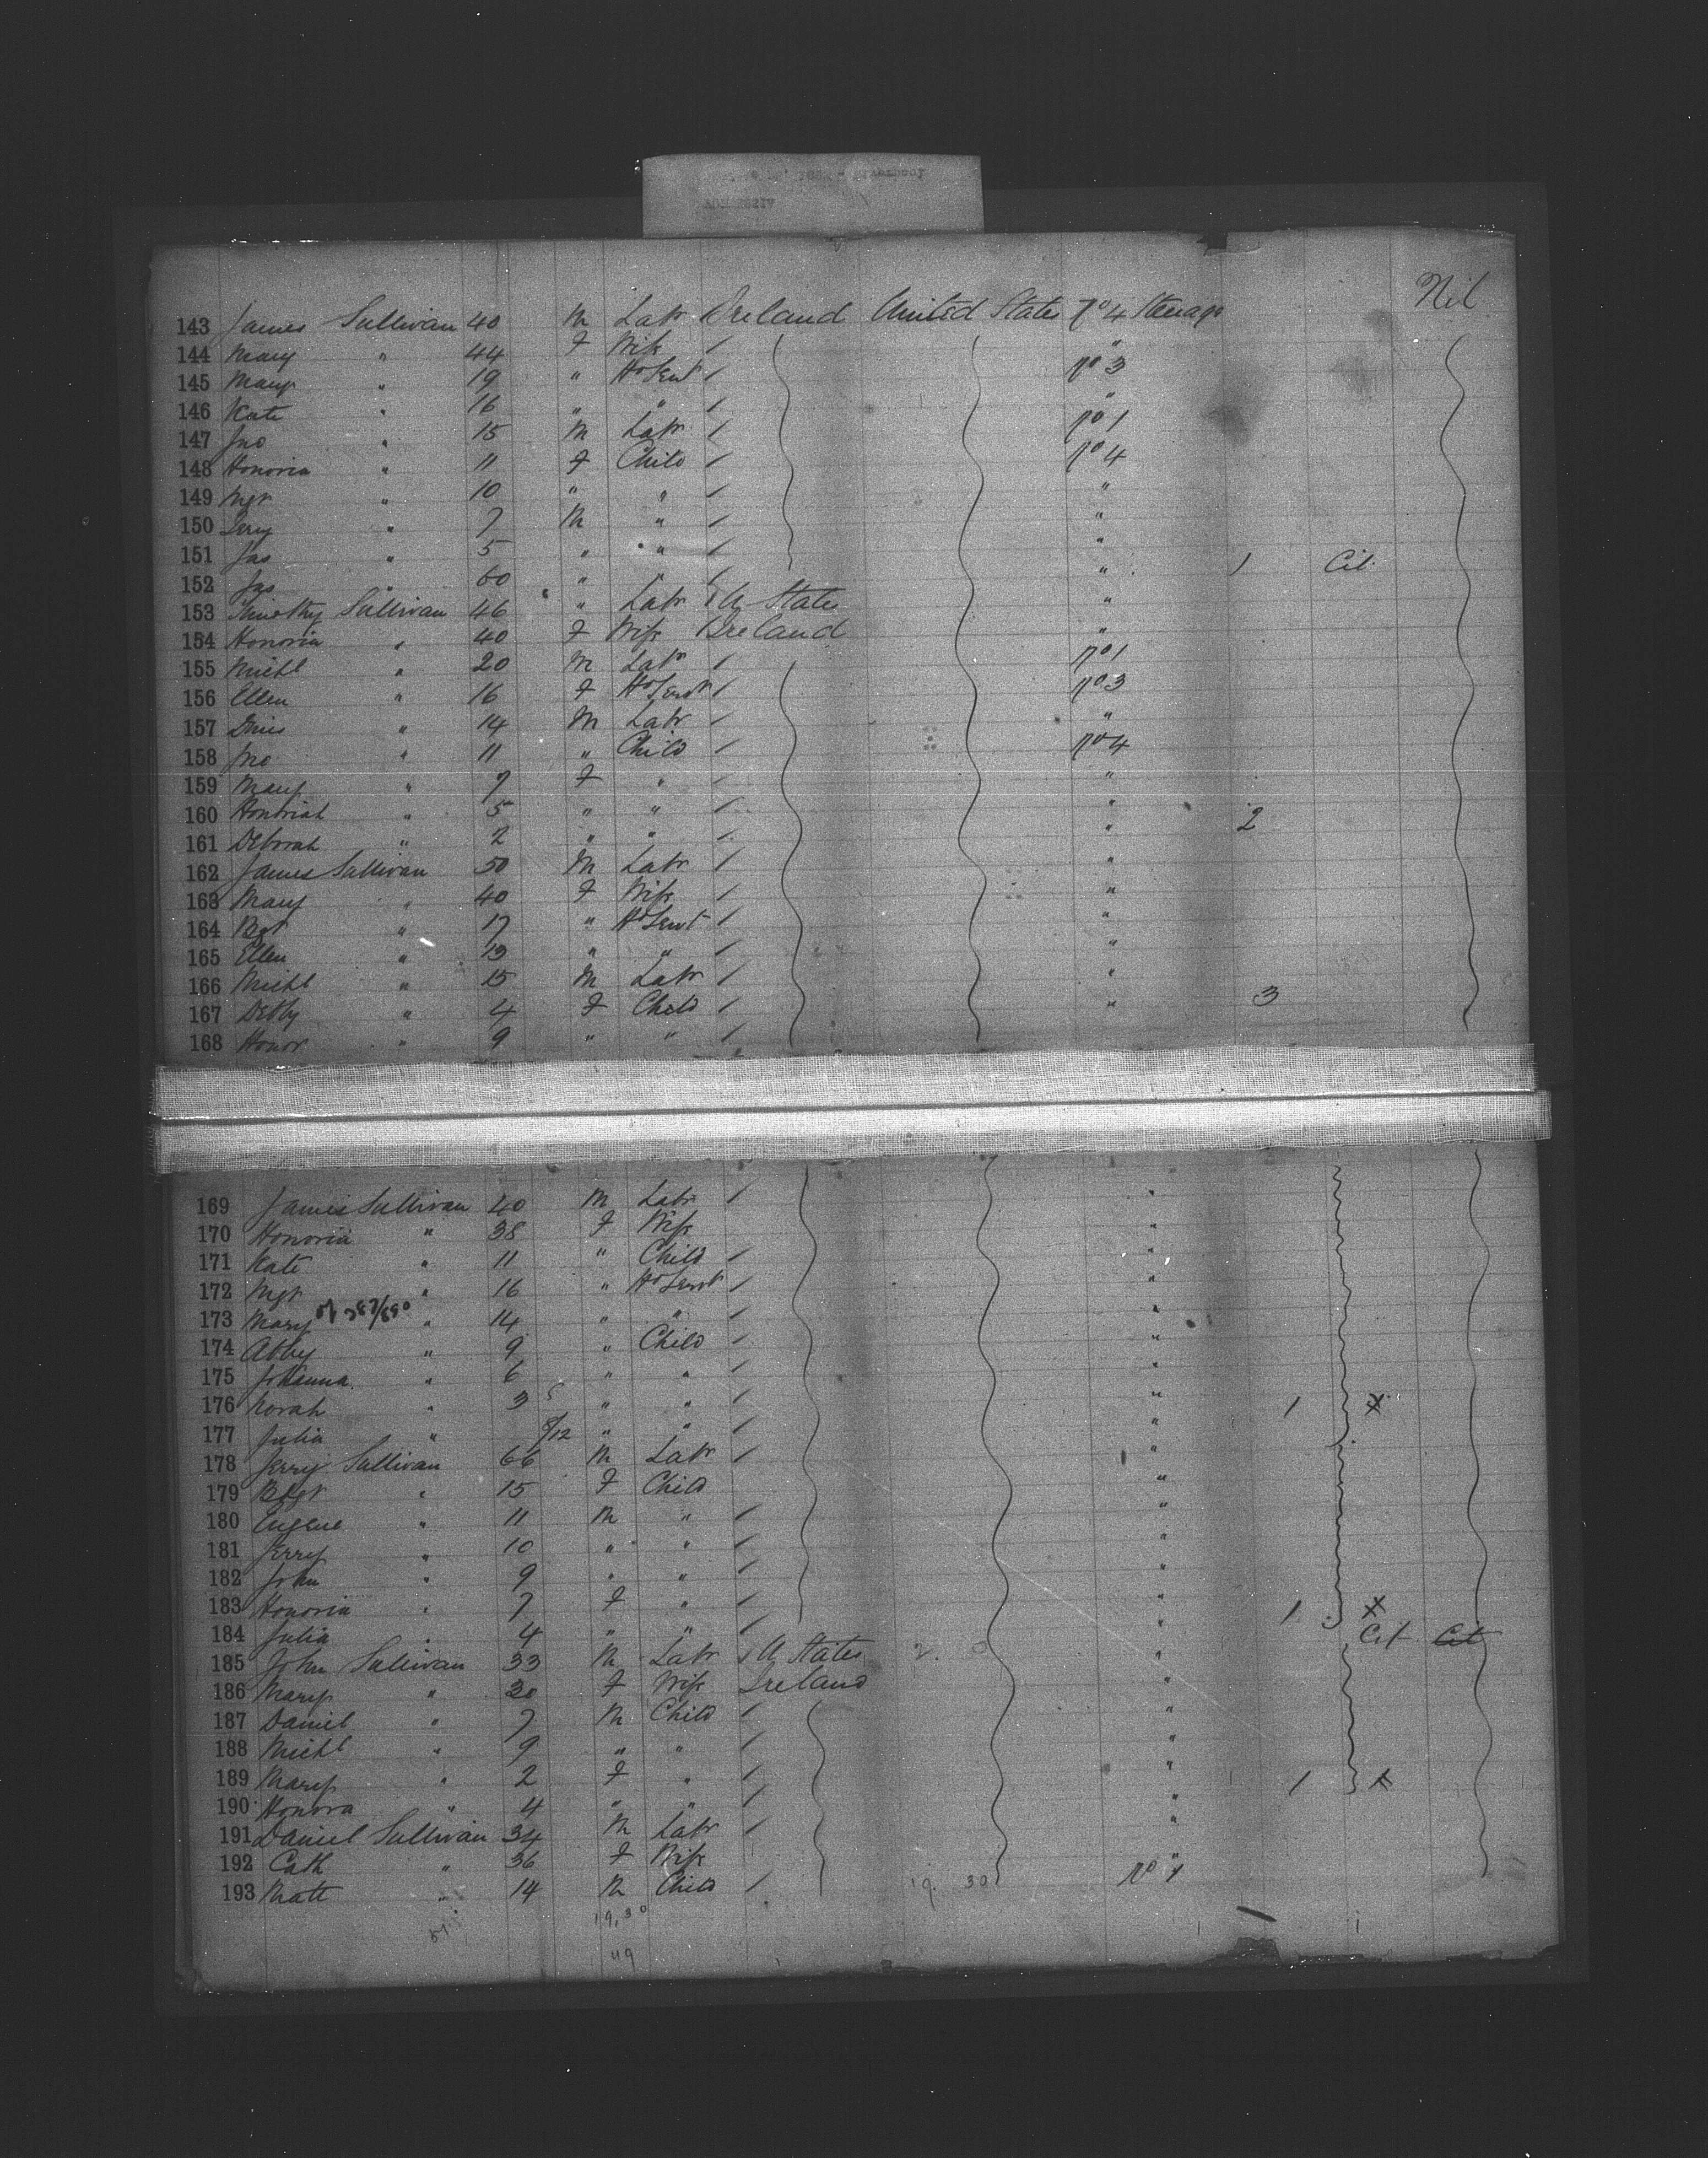 Nil
143 James Sullivan 40 M Labr Ireland United States No 4 Steerage
144 Mary " 44 F Wife / "
145 Mary " 19 " Ho Servt / No 3
146 Kate " 16 " " / "
147 Jno " 15 M Labr / No 1
148 Honoria " 11 F Child / No 4
149 Mgt " 10 " " / "
150 Jerry " 7 M " / "
151 Jas " 5 " " / "
152 Jas " 60 " " / " 1 Cit.
153 Timothy Sullivan 46 " Labr / U States "
154 Honoria " 40 F Wife Ireland "
155 Michl " 20 M Labr / No 1
156 Ellen " 16 F Ho Servt / No 3
157 " 14 M Labr / "
158 Jno " 11 " Child / No 4
159 Mary " 7 F " / "
160 Honoriah " 5 " " / "
161 Deborah " 2 " " / " 2
162 James Sullivan 50 M Labr / "
163 Mary " 40 F Wife / "
164 Bgt " 17 " Ho Servt / "
165 Ellen " 13 " " / "
166 Michl " 15 M Labr / "
167 Debby " 4 F Child / " 3
168 Honor " 9 " " /
169 James Sullivan 40 M Labr / "
170 Honoria " 38 F Wife "
171 Kate " 11 " Child / "
172 Mgt " 16 " Ho Servt / "
173 Mary " 14 " " / "
174 Abby " 9 " Child / "
175 Johanna " 6 " " / "
176 Norah " 3 " " / " 1 X
177 Julia " 8/12 " " / "
178 Jerry Sullivan 66 M Labr / "
179 Bdgt " 15 F Child "
180 Eugene " 11 M " / "
181 Jerry " 10 " " / "
182 John " 9 " " / "
183 Honoria " 7 F " / " 1 X
184 Julia " 4 " " / " Cit Cit
185 John Sullivan 33 M Labr / U States "
186 Mary " 30 F Wife Ireland "
187 Daniel " 7 M Child / "
188 Michl " 9 " " / "
189 Mary " 2 F " / " 1 X
190 Honora " 4 " " / "
191 Daniel Sullivan 34 M Labr / "
192 Cath " 36 F Wife "
193 Matt " 14 M Child / 19. 30 No 1
19,30
49